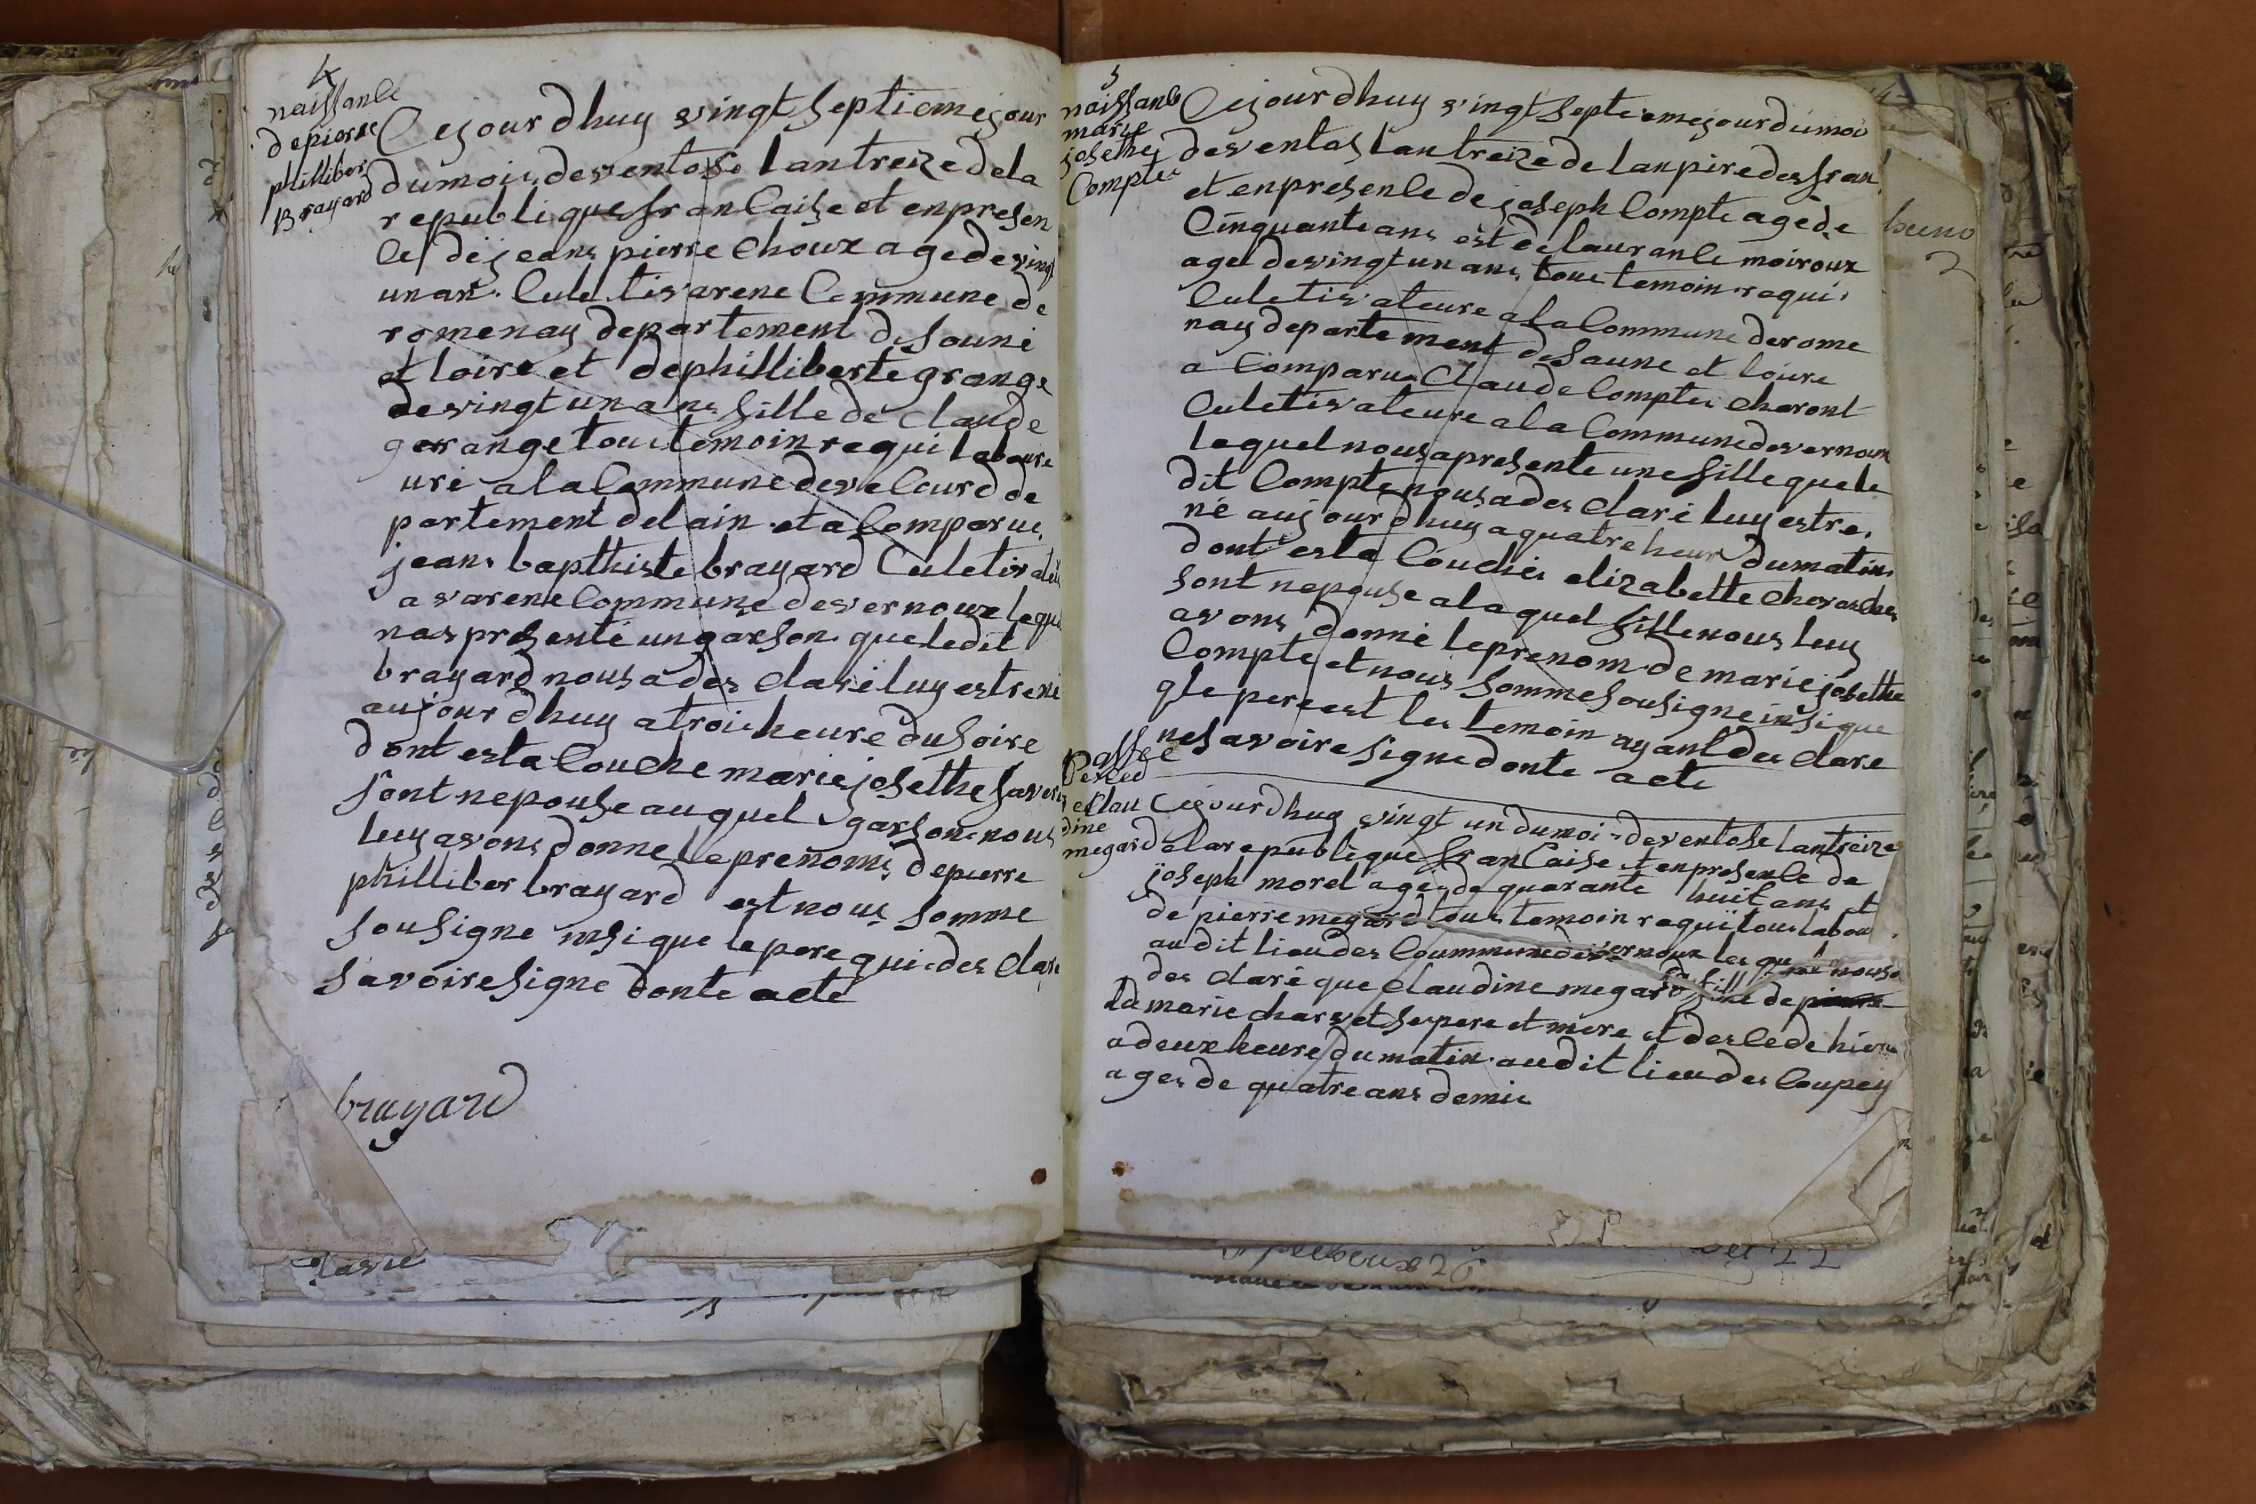 4
naissance
de pierre
philliber
Brayard
Cejourdhuy vingt septieme jour
dumois deventose lantreize dela
republique francaise et enpresen
ce dejeans pierre Choux agede vingt
unan Culetivarene Commune de
romenay departement desouné
et loire et dephilliberte grange
devingt unans fille de claude
gerange tous temoin requi laboure
uré alaCommune deveCourd de
partement delain et a Comparue
jeans bapthiste brayard Culetivateu
a varene Commune devernoux lequ
nas présenté ungarson queledit
brayard nousa des claré luy estrené
aujourdhuy atroisheure dusoire
dont esta Couche mariejosethe favre
sont nepouse auquel garson nous
luy avons donne Leprenoms depierre
philliber brayard est nous somme
sousigne insi que lepere qui des clare
savoire signe donte acte
brayard
5
naissance
marie
josethe
Compte
Cejourdhuy vingt septieme jour dumoi
deventos lantreize de lanpire des fran
et enpresence de joseph Compte agede
Cinquante ans est de laurance moiroux
age devingt un ans tous temoin requi
Culetivateure alaCommune derome
nay departement desaune et loire
a Comparu Claude Compte charont
Culetivateure ala Commune devernoux
lequel nousapresente une fille quele
dit Compte nousa des claré luy estre
né aujourdhuy aquatre heur dumatin
dont esta Couchée elizabette chevarches
sont nepouse alaquel fille nous luy
avons donné leprenom de marie josethe
Compte et nous somme sousigne insique
qle pere est les temoin ayant des clare
ne savoire signe donte acte
Cejourdhuy vingt un dumoi deventose lantreize
dine
megard
delarepublique francaise et enpresence de
joseph morel age de quarante huit ans et
de pierre megard tous temoin requi tous labou
audit lieu des Coummune devernoux les quel nousa
des claré que claudine megard fille de pierre
ed marie charvet sespere et mere et des cede hiere
adeux heure dumatin audit lieu des Coupey
ages de quatre ans demie